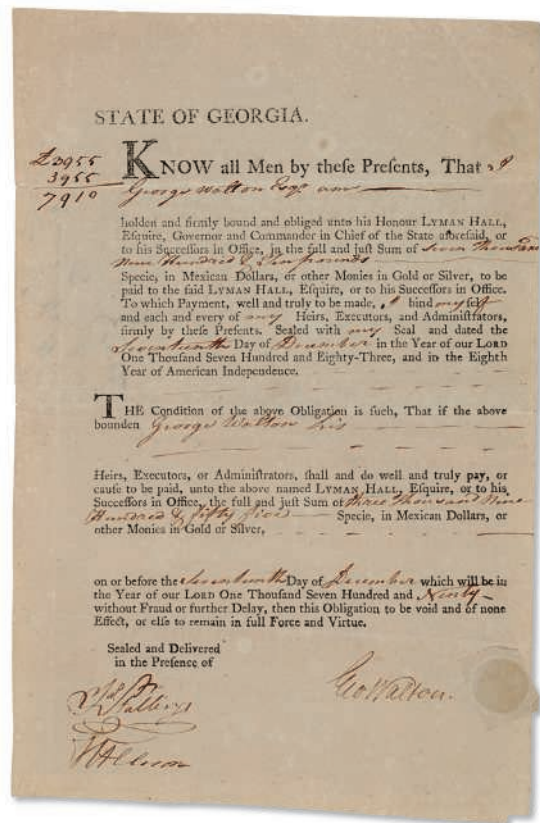 STATE OF GEORGIA.
£3955
3955
7910
KNOW all Men by theſe Preſents, That I
George Walton Esqr am
holden and firmly bound and obliged unto his Honour LYMAN HALL,
Eſquire, Governor and Commander in Chief of the State aforeſaid, or
to his Succeſſors in Office, in the full and juſt Sum of Seven thousand
nine Hundred & Ten pounds
Specie, in Mexican Dollars, or other Monies in Gold or Silver, to be
paid to the ſaid LYMAN HALL, Eſquire, or to his Succeſſors in Office.
To which Payment, well and truly to be made, I bind myself
and each and every of my Heirs, Executors, and Adminiſtrators,
firmly by theſe Preſents. Sealed with my Seal and dated the
Seventeenth Day of December in the Year of our LORD
One Thouſand Seven Hundred and Eighty-Three, and in the Eighth
Year of American Independence.
THE Condition of the above Obligation is ſuch, That if the above
bounden George Walton his
Heirs, Executors, or Adminiſtrators, ſhall and do well and truly pay, or
cauſe to be paid, unto the above named LYMAN HALL, Eſquire, or to his
Succeſſors in Office, the full and juſt Sum of three thousand Nine
Hundred & fifty five Specie, in Mexican Dollars, or
other Monies in Gold or Silver,
on or before the Seventeenth Day of December which will be in
the Year of our LORD One Thouſand Seven Hundred and Ninety
without Fraud or further Delay, then this Obligation to be void and of none
Effect, or elſe to remain in full Force and Virtue.
Sealed and Delivered
in the Preſence of
Geo Walton.